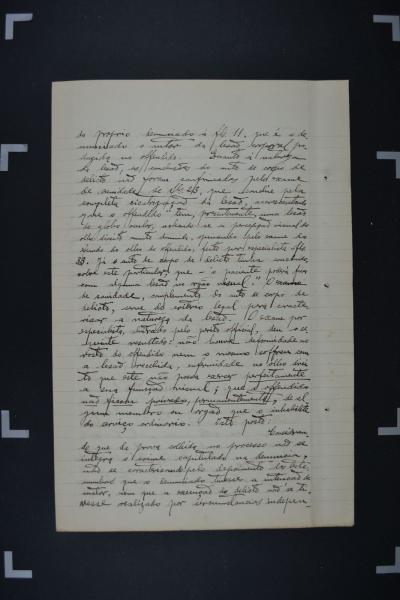 do proprio denunciado á fls. 11. que é o de-
nunciado o autor da lesão corporal pro-
duzida no offendido. Quanto á natureza
da lesão, as conclusões do auto de corpo de
delicto não foram confirmadas pelo exame
de sanidade, de fls. 43, que conclue pela
completa cicatrização da lesão, accrescentando
que o offendido tem, presentemente, uma lesão
do globo ocular, achando-se a percepção visual do
olho direito muito diminuida, pelo exame do
fundo do olho do offendido, feito por especialista fls.
38. Já o auto de corpo de delicto tinha
sobre este particular, que — "o paciente podia ficar
com alguma lesão no orgão visual." O exame
de sanidade, complemento do auto de corpo de
delicto, serve de criterio legal para caracte-
rizar a natureza da lesão. O exame por
especialista, pelo perito official, deu o se-
guinte resultado: não houve deformidade no
rosto do offendido nem o mesmo soffreu com
a lesão recebida, enfermidade no olho direi-
to que este não possa exercer perfeitamente
a sua funcção visual; que o offendido
não ficou privado, permanentemente, de al-
gum membro ou orgão que o inhabilite
do serviço ordinario. Isto posto:
Consideran-
do que da prova colhida no processo não se
integra o crime capitulado na denuncia,
não se caracterizando pelo depoimento das teste-
munhas que o denunciado tivesse a intenção de
matar, nem que a execução do delicto não se ti-
vesse realizado por circumstancias indepen-